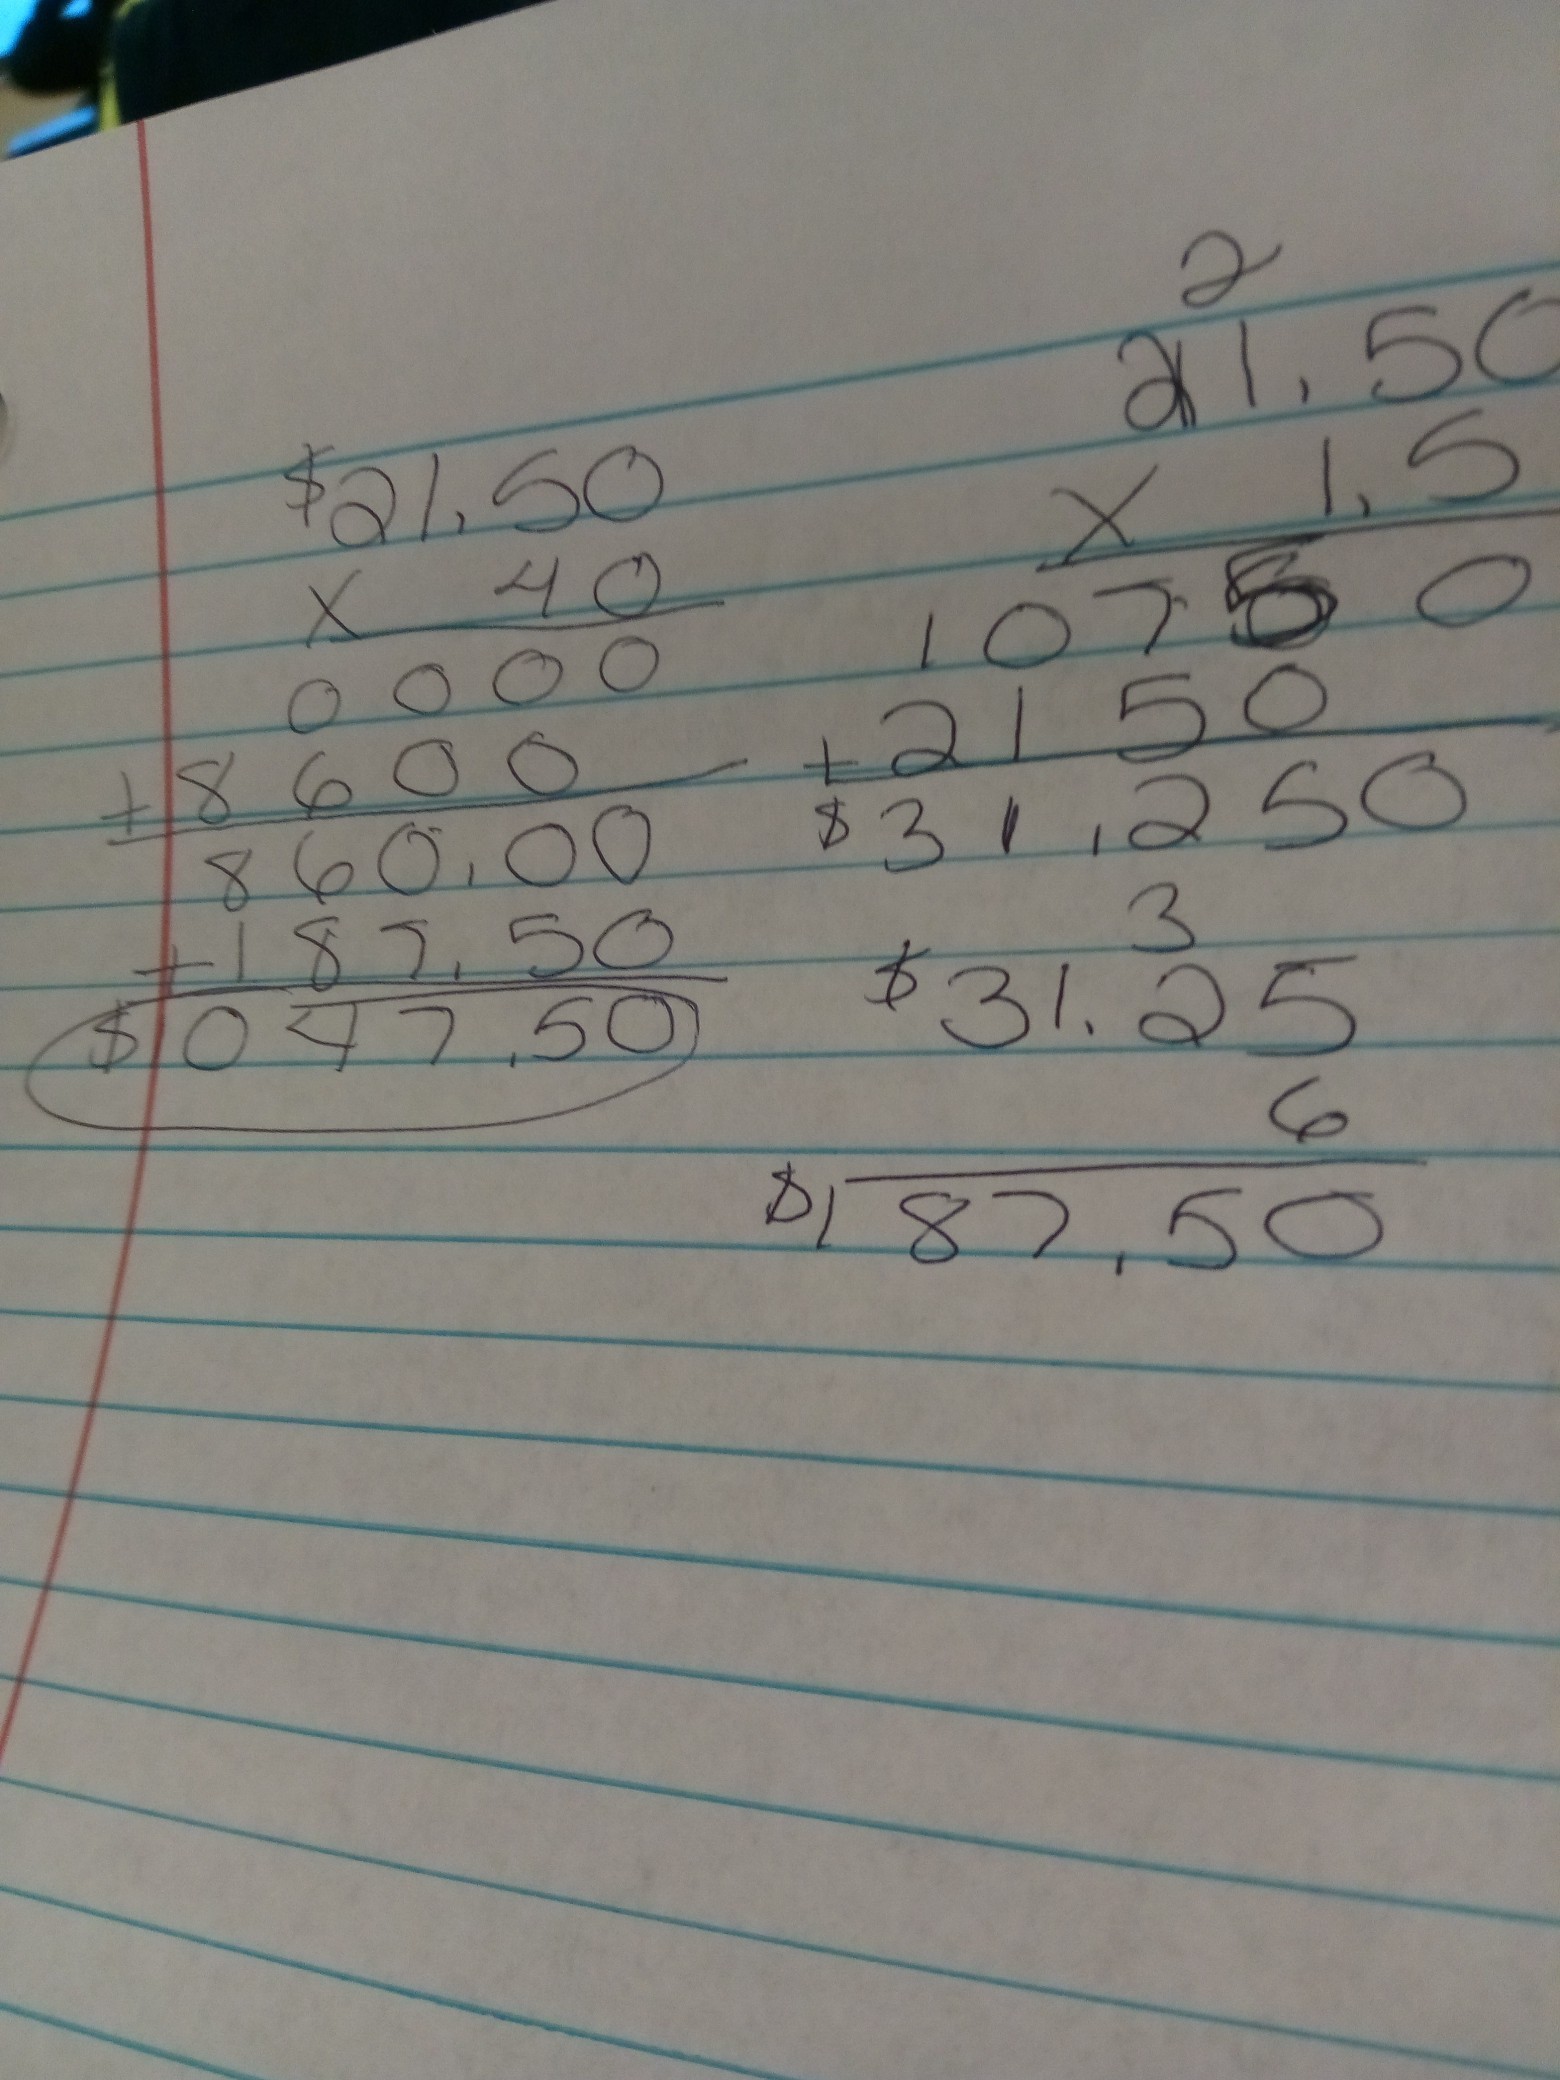 $21.50
x 40
0000
+8600
860.00
+187.50
$047.50
2
21.50
x 1.5
10750
+2150
$31.250
3
$31.25
6
$187.50